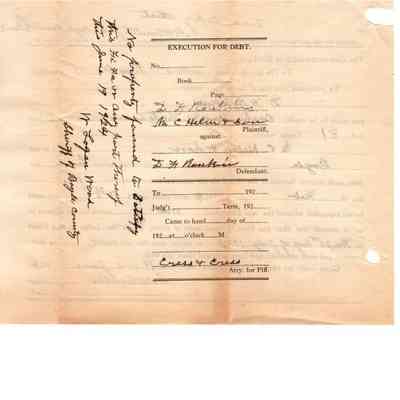 EXECUTION FOR DEBT.
No.
Book
Page
D. F. Rankin
M C Helm & Son
Plaintiff,
against
D. F. Rankin
Defendant.
To 192
Judg't Term, 192
Came to hand day of
192 at o'clock M
Cress & Cress
Atty. for Plff.
No property found to Satisfy
this Fi Fa or any part thereof
This June 19 1924
W Logan Wood
Sheriff of Boyle County